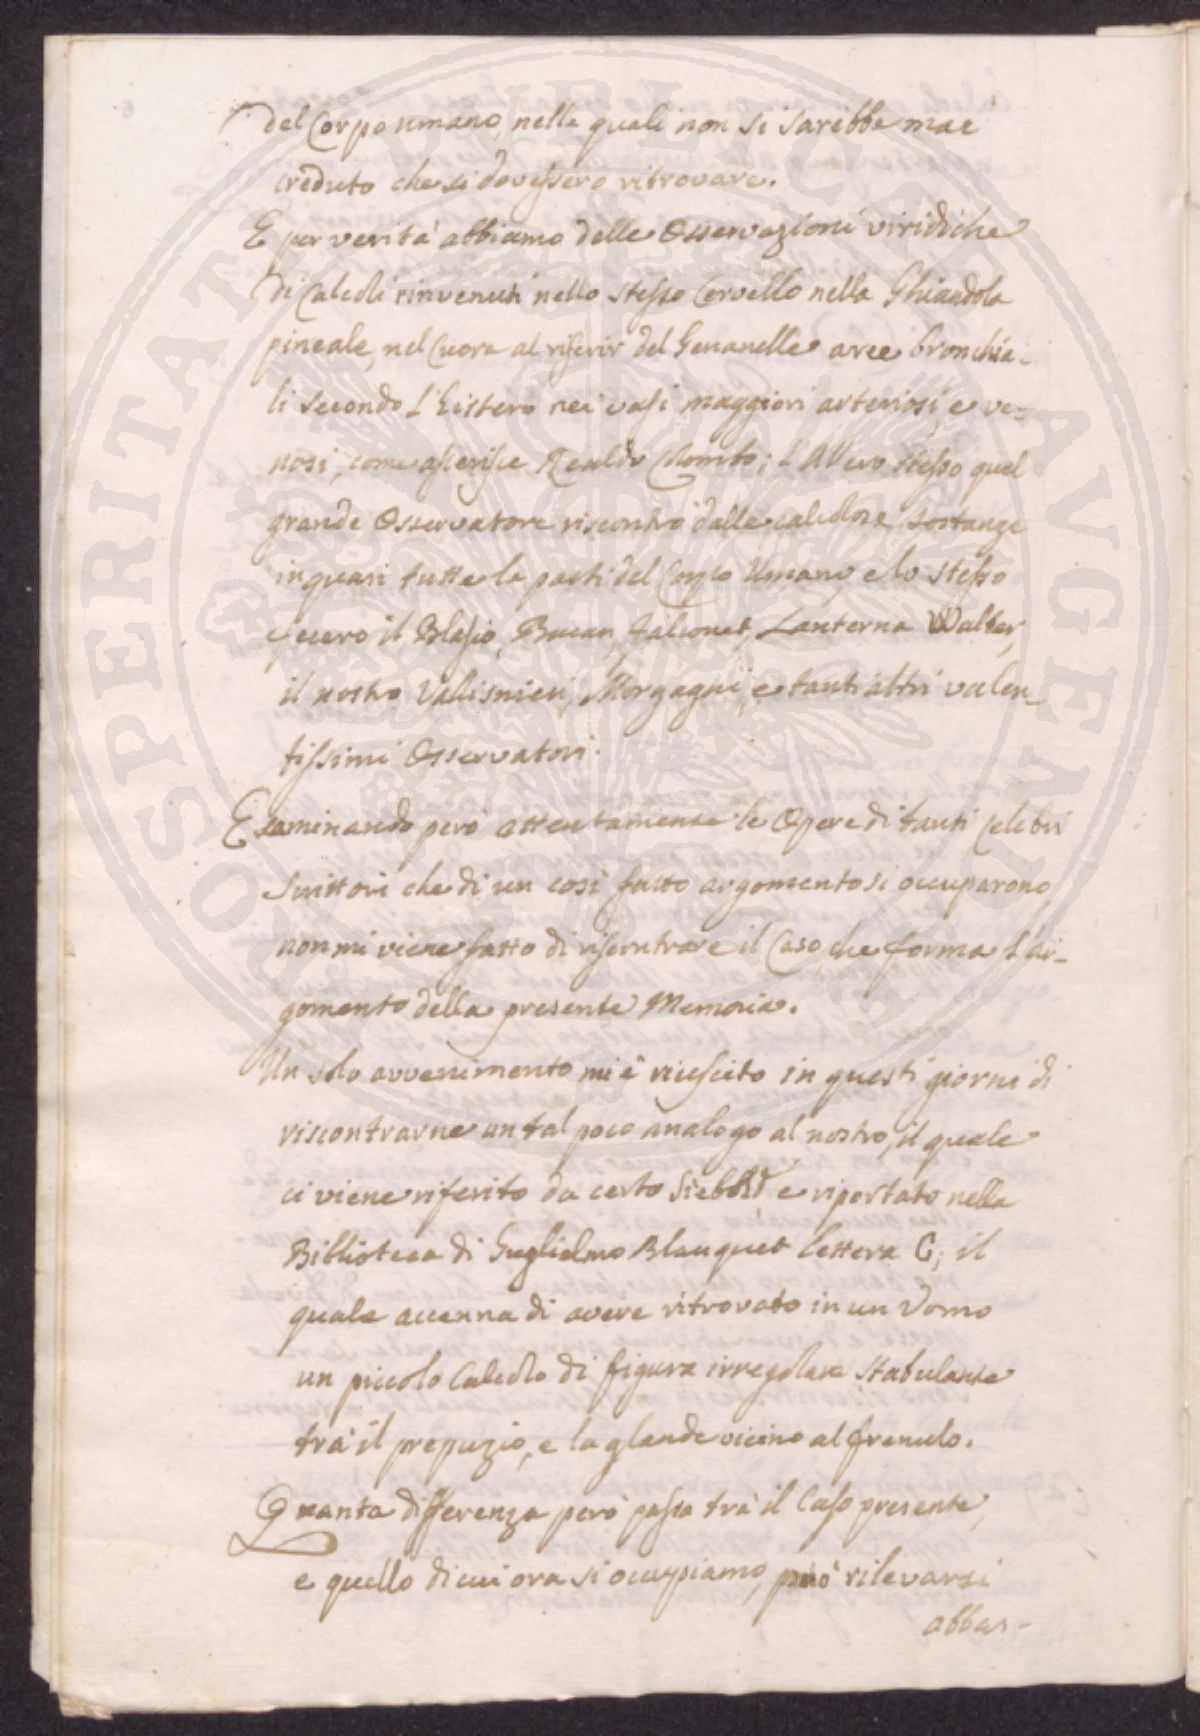 del Corpo umano, nelle quali non si sarebbe mai
creduto che si dovessero ritrovare.
E per verità abbiamo delle Osservazioni viridiche
di Calcoli rinvenuti nello stesso Cervello nella Ghiandola
pineale, nel Cuore al riferir del Genanelle aree bronchia-
li secondo l'Eistero nei vasi maggiori arteriosi, e ve-
nosi, come asserisce Realdo Colombo; l'Allero stesso quel
grande Osservatore riscontrò dalle calcolose sostanze
in quasi tutte le parti del Corpo Umano, e lo stesso
fecero il Blasio, Falconet, Lanterna Walter,
il nostro Valisnieri, Morgagni, e tanti altri valen-
tissimi Osservatori.
Esaminando però attentamente le Opere di tanti celebri
Scrittori che di un così fatto argomento si occuparono,
non mi viene fatto di riscontrare il Caso, che forma l'ar-
gomento della presente Memoria.
Un solo avvenimento mi è riuscito in questi giorni di
riscontrarne un tal poco analogo al nostro, il quale
ci viene riferito da certo e riportato nella
Biblioteca di Guglielmo Blauquet lettera C; il
quale accenna di avere ritrovato in un Vomo
un piccolo Calcolo di figura irregolare stabulante
trà il prepuzio, e la glande vicino al frenulo.
Quanta differenza però passa trà il Caso presente,
e quello di cui ora si occupiamo, può rilevarsi
abbas-
SPERITATI PUBLICAE AUGENDAE